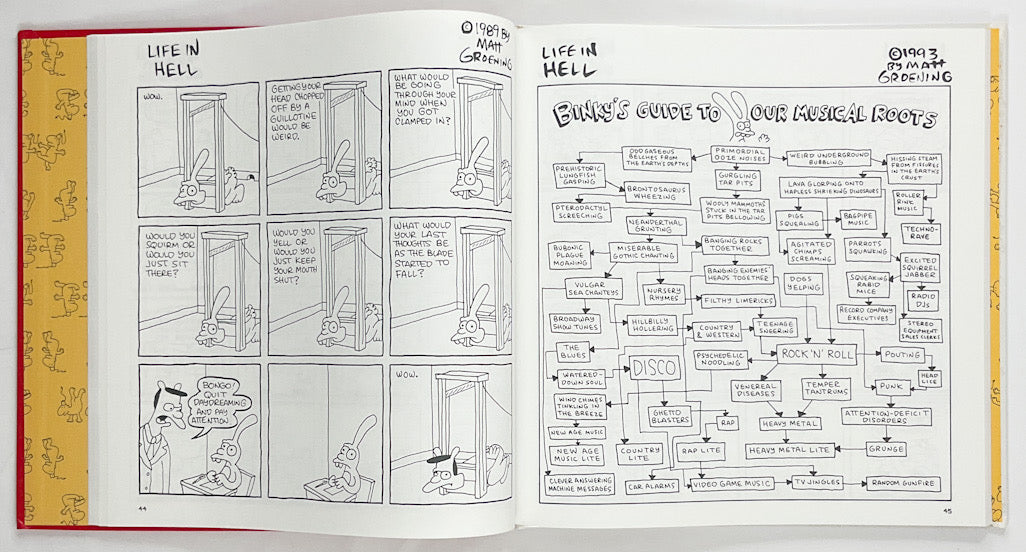 LIFE IN
HELL
©1989 BY
MATT
GROENING
WOW.
GETTING YOUR
HEAD CHOPPED
OFF BY A
GUILLOTINE
WOULD BE
WEIRD.
WHAT WOULD
BE GOING
THROUGH YOUR
MIND WHEN
YOU GOT
CLAMPED IN?
WOULD YOU
SQUIRM OR
WOULD YOU
JUST SIT
THERE?
WOULD YOU
YELL OR
WOULD YOU
JUST KEEP
YOUR MOUTH
SHUT?
WHAT WOULD
YOUR LAST
THOUGHTS BE
AS THE BLADE
STARTED TO
FALL?
BONGO!
QUIT
DAYDREAMING
AND PAY
ATTENTION.
WOW.
44
LIFE IN
HELL
©1993
BY MATT
GROENING
BINKY'S GUIDE TO OUR MUSICAL ROOTS
ODD GASEOUS
BELCHES FROM
THE EARTH'S DEPTHS
PRIMORDIAL
OOZE NOISES
WEIRD UNDERGROUND
BUBBLING
HISSING STEAM
FROM FISSURES
IN THE EARTH'S
CRUST
PREHISTORIC
LUNGFISH
GASPING
GURGLING
TAR PITS
LAVA GLORPING ONTO
HAPLESS SHRIEKING DINOSAURS
BRONTOSAURUS
WHEEZING
ROLLER
RINK
MUSIC
PTERODACTYL
SCREECHING
WOOLY MAMMOTHS
STUCK IN THE TAR
PITS BELLOWING
PIGS
SQUEALING
BAGPIPE
MUSIC
NEANDERTHAL
GRUNTING
TECHNO-
RAVE
BUBONIC
PLAGUE
MOANING
MISERABLE
GOTHIC CHANTING
BANGING ROCKS
TOGETHER
AGITATED
CHIMPS
SCREAMING
PARROTS
SQUAWKING
EXCITED
SQUIRREL
JABBER
BANGING ENEMIES'
HEADS TOGETHER
VULGAR
SEA CHANTEYS
NURSERY
RHYMES
DOGS
YELPING
SQUEAKING
RABID
MICE
RADIO
DJs
FILTHY LIMERICKS
BROADWAY
SHOW TUNES
HILLBILLY
HOLLERING
COUNTRY
& WESTERN
TEENAGE
SNEERING
RECORD COMPANY
EXECUTIVES
STEREO
EQUIPMENT
SALES CLERKS
THE
BLUES
DISCO
PSYCHEDELIC
NOODLING
ROCK 'N' ROLL
POUTING
WATERED-
DOWN SOUL
HEAD
LICE
VENEREAL
DISEASES
TEMPER
TANTRUMS
PUNK
WIND CHIMES
TINKLING IN
THE BREEZE
GHETTO
BLASTERS
RAP
HEAVY METAL
ATTENTION-DEFICIT
DISORDERS
NEW AGE MUSIC
NEW AGE
MUSIC LITE
COUNTRY
LITE
RAP LITE
HEAVY METAL LITE
GRUNGE
CLEVER ANSWERING
MACHINE MESSAGES
CAR ALARMS
VIDEO GAME MUSIC
TV JINGLES
RANDOM GUNFIRE
45